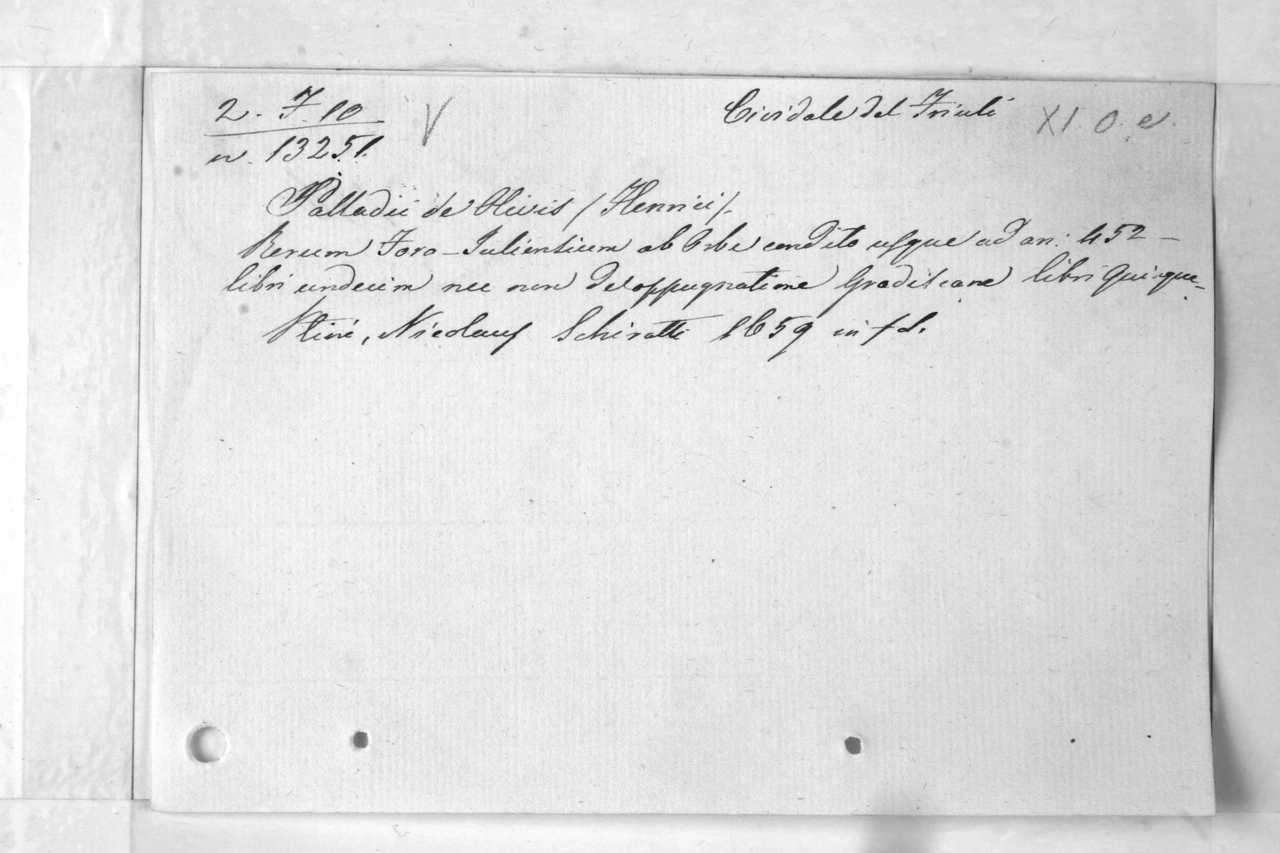 2. F. 10 V Cividale del Friuli XI. O. e.
n. 13251.
Palladii de Olivis /Henrici/.
Rerum Foro-Juliensium ab Orbe condito usque ad an: 452 -
libri undecim nec non de oppugnatione Gradiscane libri quique-
Utini, Nicolaus Schiratti 1659 in fol.